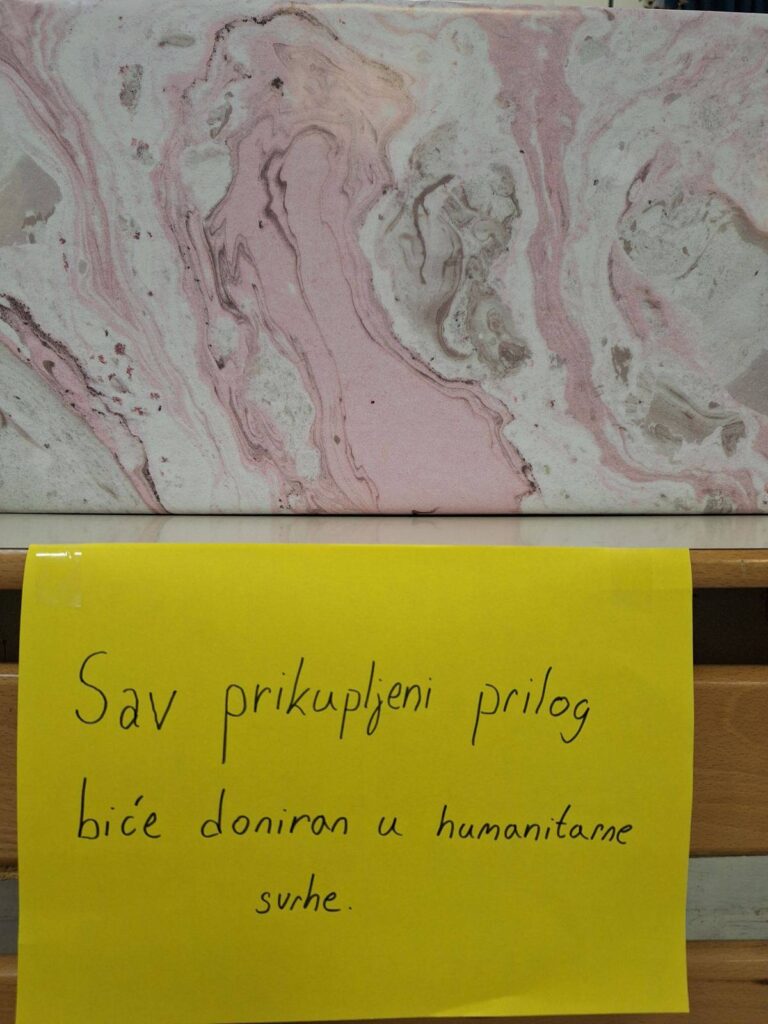 Sav prikupljeni prilog
biće doniran u humanitarne
svrhe.